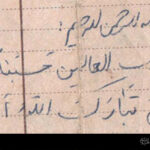 الرحمن الرحيم:
العالمين حسبنا
تبارك الله أ